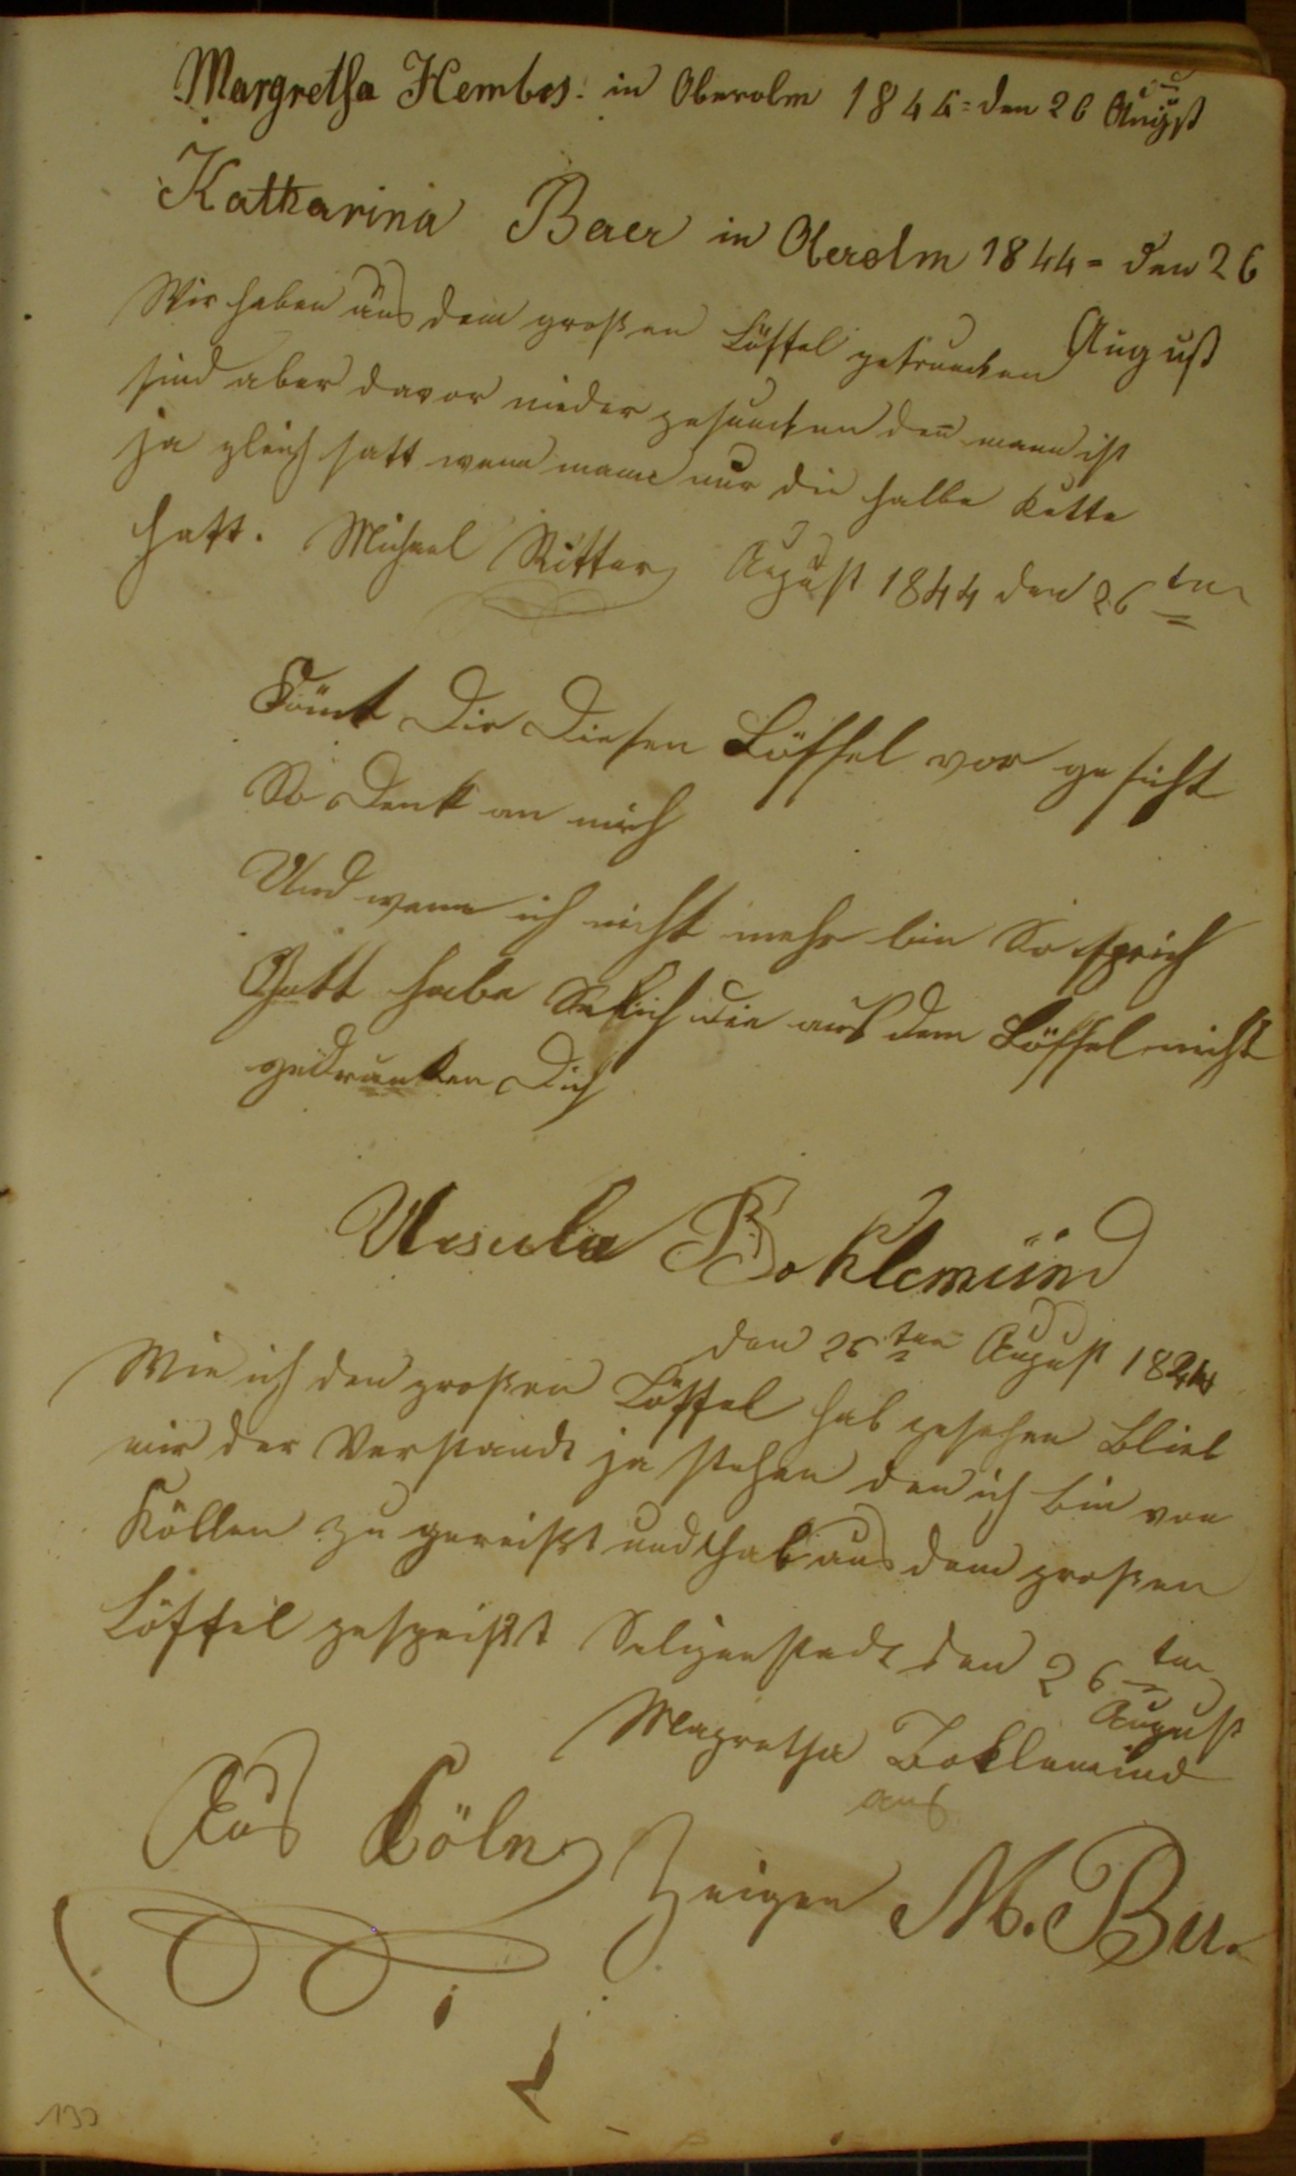 Margretha Hembes. in Oberolm 1844 = den 26 August
Katharina Baer in Oberolm 1844 = den 26
August
Wir haben aus dem großen Löffel getruncken
sind aber davor nieder gesuncken den mann ist
ja gleich satt wenn mann nur die halbe Kette
hatt. Michael Ritter August 1844 den 26ten
Kömt Dir Diesen Löffel vor gesicht
So Denk an mich
Und wenn ich nicht mehr bin So sprich
Gott habe Selich die aus dem Löffel nicht
gedrunken Dich
Ursula Boklemünd
den 26ten August 1844
Wie ich den großen Löffel hab gesehen Blieb
mir der Verstandt ja stehen den ich bin von
Köllen zu gereißt und hab aus dem großen
Löffel gespeißt Seligenstadt den 26ten
August
Magretha Boklemünd
aus
Aus Cöln Zeigen M. Bu.
133